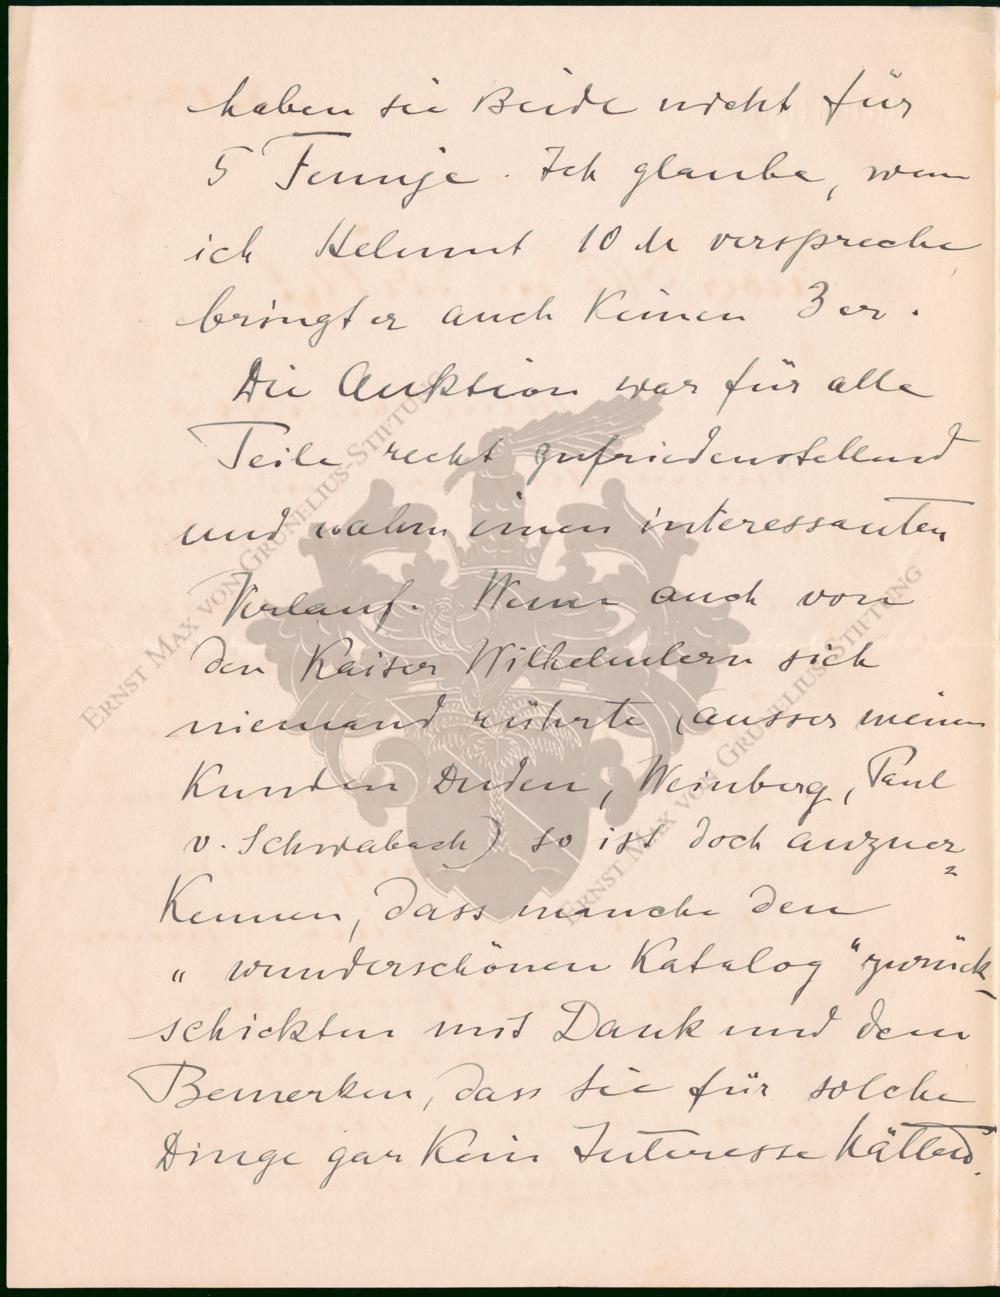 haben sie Beide nicht für
5 Fennije. Ich glaube, wenn
ich Helmut 10 M verspreche,
bringt er auch keinen 3 er.
Die Auktion war für alle
Teile recht zufriedenstellend
und nahm einen interessanten
Verlauf. Wenn auch von
den Kaiser Wilhelmlern sich
niemand rührte (ausser meinen
Kunden Duden, Weinberg, Paul
v. Schwabach) so ist doch anzuer=
kennen, dass manche den
"wunderschönen Katalog" zurück-
schickten mit Dank und dem
Bemerken, dass sie für solche
Dinge gar kein Interesse hätten.
ERNST MAX VON GRUNELIUS-STIFTUNG
ERNST MAX VON GRUNELIUS-STIFTUNG